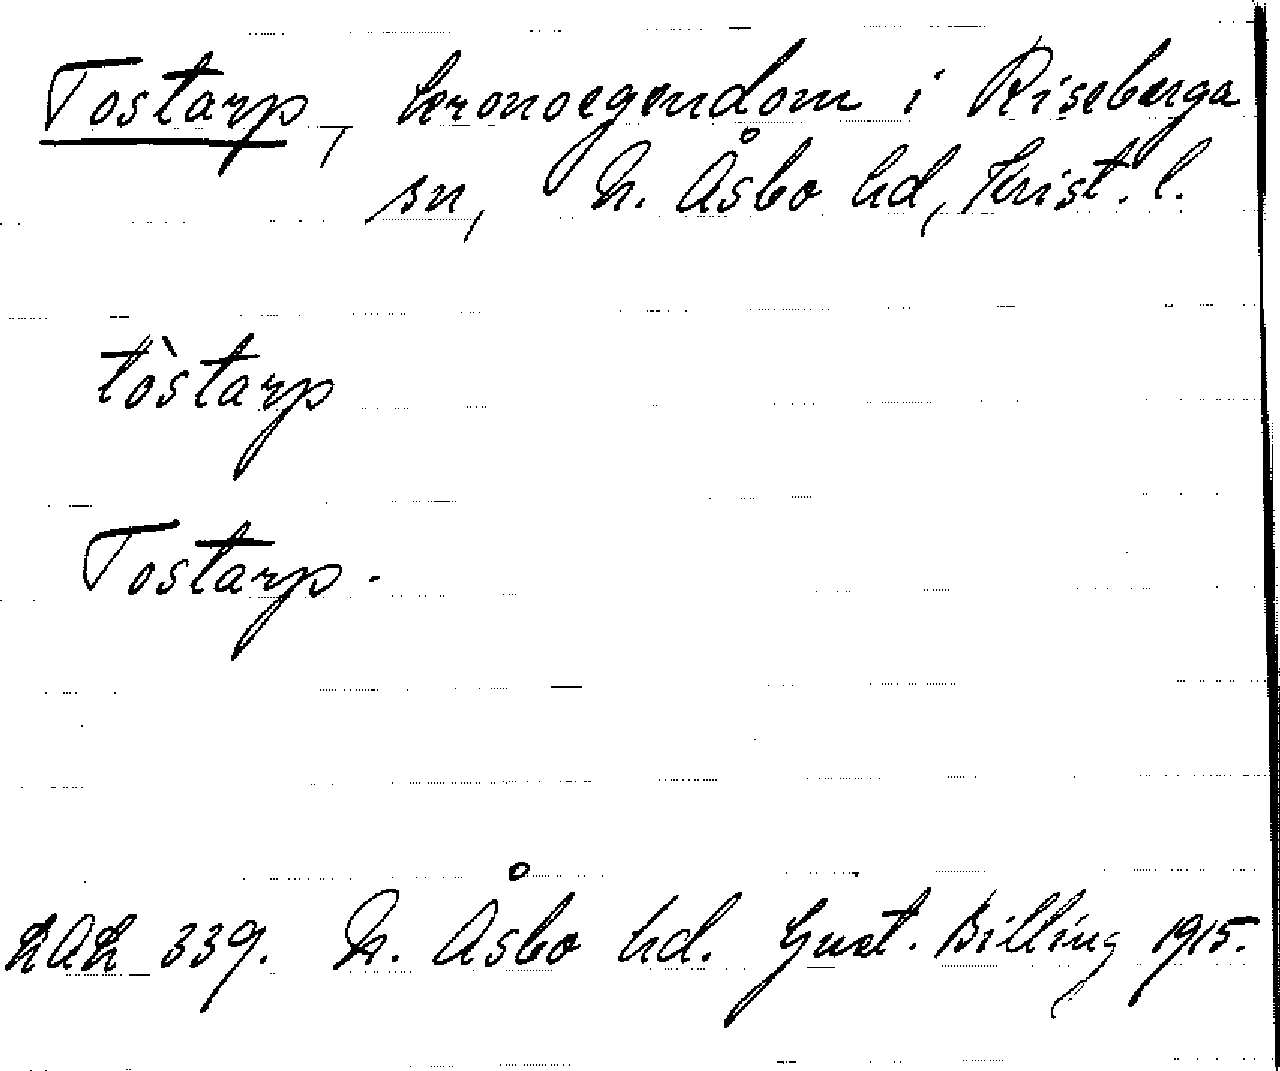 Tostarp, kronoegendom i Riseberga
sn, N. Åsbo hd, Krist. l.
tòstarp
Tostarp.
LAL 339. N. Åsbo hd. Gust. Billing 1915.